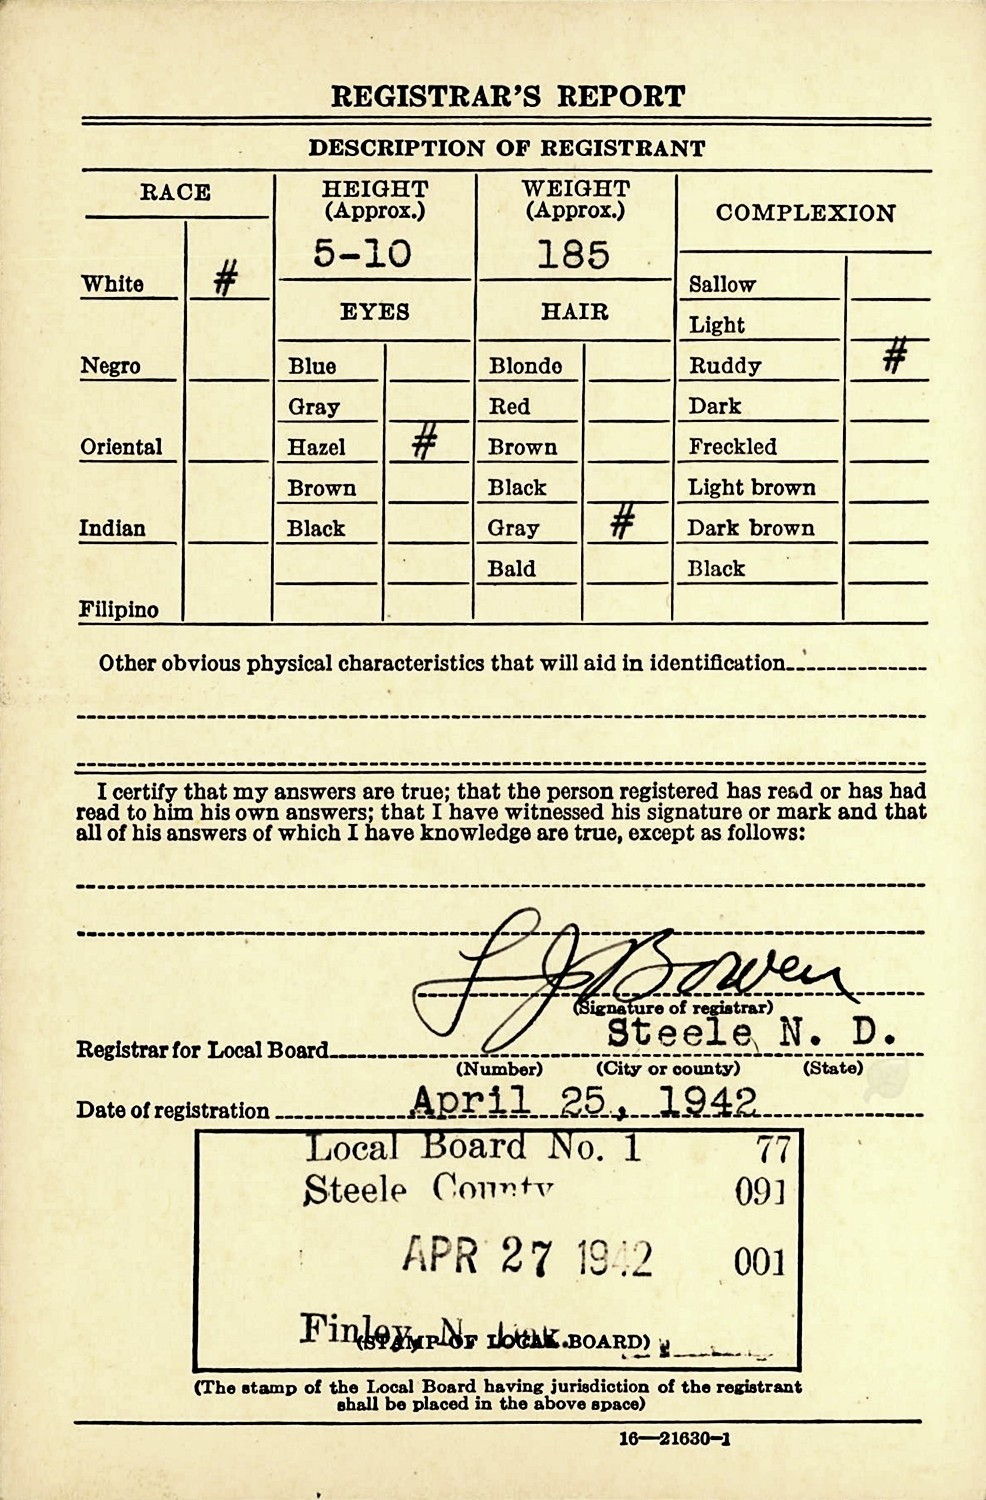 REGISTRAR'S REPORT
DESCRIPTION OF REGISTRANT
RACE
HEIGHT
(Approx.)
5-10
WEIGHT
(Approx.)
185
COMPLEXION
White #
Negro
Oriental
Indian
Filipino
EYES
Blue
Gray
Hazel #
Brown
Black
HAIR
Blonde
Red
Brown
Black
Gray #
Bald
Sallow
Light
Ruddy #
Dark
Freckled
Light brown
Dark brown
Black
Other obvious physical characteristics that will aid in identification
I certify that my answers are true; that the person registered has read or has had
read to him his own answers; that I have witnessed his signature or mark and that
all of his answers of which I have knowledge are true, except as follows:
L J Bowen
(Signature of registrar)
Registrar for Local Board Steele N. D.
(Number) (City or county) (State)
Date of registration April 25, 1942
Local Board No. 1 77
Steele County 091
APR 27 1942 001
Finley, N. Dak.
(STAMP OF LOCAL BOARD)
(The stamp of the Local Board having jurisdiction of the registrant
shall be placed in the above space)
16—21630-1